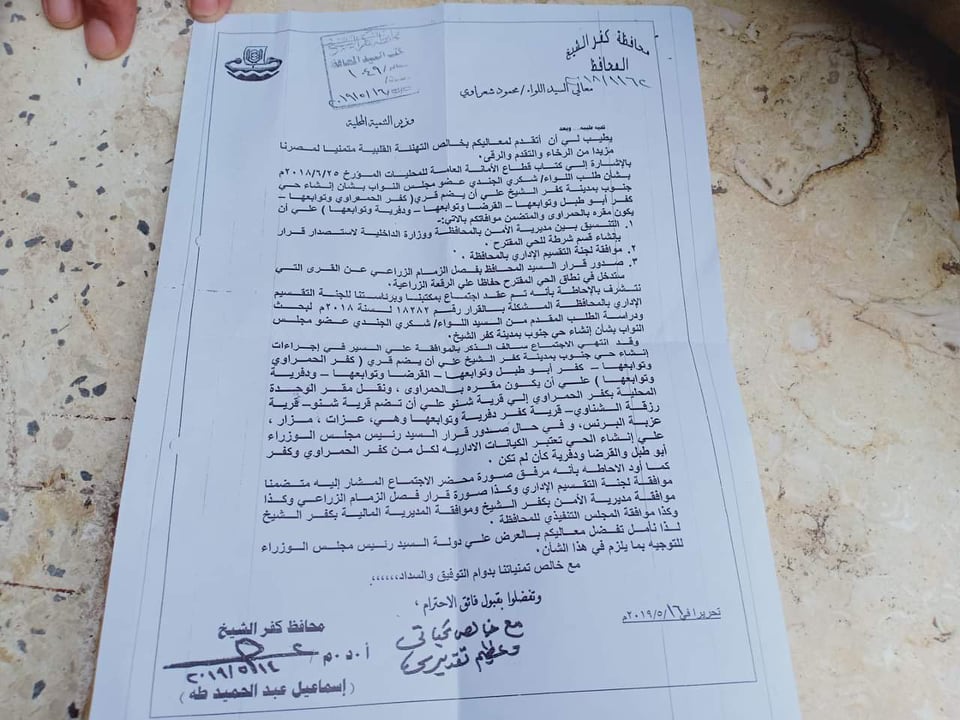 محافظة كفر الشيخ
المحافظ
معالي السيد اللواء/ محمود شعراوي
وزير التنمية المحلية
تحية طيبة... وبعد
يطيب لي أن أتقدم لمعاليكم بخالص التهنئة القلبية متمنيا لمصرنا
مزيدا من الرخاء والتقدم والرقى.
بالإشارة إلي كتاب قطاع الأمانة العامة للمحليات المؤرخ ٢٠١٨/٦/٢٥م
بشأن طلب اللواء/ شكري الجندي عضو مجلس النواب بشان إنشاء حي
جنوب بمدينة كفر الشيخ علي أن يضم قري( كفر الحمراوي وتوابعها –
كفر أبو طبل وتوابعها – القرضا وتوابعها – ودفرية وتوابعها ) علي أن
يكون مقره بالحمراوى والمتضمن موافاتكم بالاتي:-
١. التنسيق بين مديرية الأمن بالمحافظة ووزارة الداخلية لاستصدار قرار
بإنشاء قسم شرطة للحي المقترح .
٢. موافقة لجنة التقسيم الإداري بالمحافظة .
٣. صدور قرار السيد المحافظ بفصل الزمام الزراعي عن القرى التي
ستدخل في نطاق الحي المقترح حفاظا علي الرقعة الزراعية.
نتشرف بالإحاطة بأنه تم عقد اجتماع بمكتبنا وبرئاستنا للجنة التقسيم
الإداري بالمحافظة المشكلة بالقرار رقم ١٨٢٨٢ لسنة ٢٠١٨م لبحث
ودراسة الطلب المقدم من السيد اللواء/ شكري الجندي عضو مجلس
النواب بشأن إنشاء حي جنوب بمدينة كفر الشيخ.
وقد انتهي الاجتماع سالف الذكر بالموافقة علي السير في إجراءات
إنشاء حي جنوب بمدينة كفر الشيخ علي أن يضم قري ( كفر الحمراوي
وتوابعها – كفر أبو طبل وتوابعها – القرضا وتوابعها – ودفرية
وتوابعها ) علي أن يكون مقره بالحمراوى ، ونقل مقر الوحدة
المحلية بكفر الحمراوي إلي قرية شنو علي أن تضم قرية شنو–قرية
رزقة الشناوي– قرية كفر دفرية وتوابعها وهي، عزات ، مزار ،
عزبة البرنس، و في حال صدور قرار السيد رئيس مجلس الوزراء
علي إنشاء الحي تعتبر الكيانات الاداريه لكل من كفر الحمراوي وكفر
أبو طبل والقرضا ودفرية كأن لم تكن .
كما أود الاحاطه بأنه مرفق صورة محضر الاجتماع المشار إليه متضمنا
موافقة لجنة التقسيم الإداري وكذا صورة قرار فصل الزمام الزراعي وكذا
موافقة مديرية الأمن بكفر الشيخ وموافقة المديرية المالية بكفر الشيخ
وكذا موافقة المجلس التنفيذي للمحافظة .
لذا نأمل تفضل معاليكم بالعرض علي دولة السيد رئيس مجلس الوزراء
للتوجيه بما يلزم في هذا الشأن.
مع خالص تمنياتنا بدوام التوفيق والسداد،،،،،،
وتفضلوا بقبول فائق الاحترام ،
تحريرا في ٢٠١٩/٥/١٦م
مع خالص تحياتي
وعظيم تقديري
محافظ كفر الشيخ
أ.د.م/
٢٠١٩/٥/١٤
(إسماعيل عبد الحميد طه)
١٠٤٩
٢٠١٩/٥/١٦